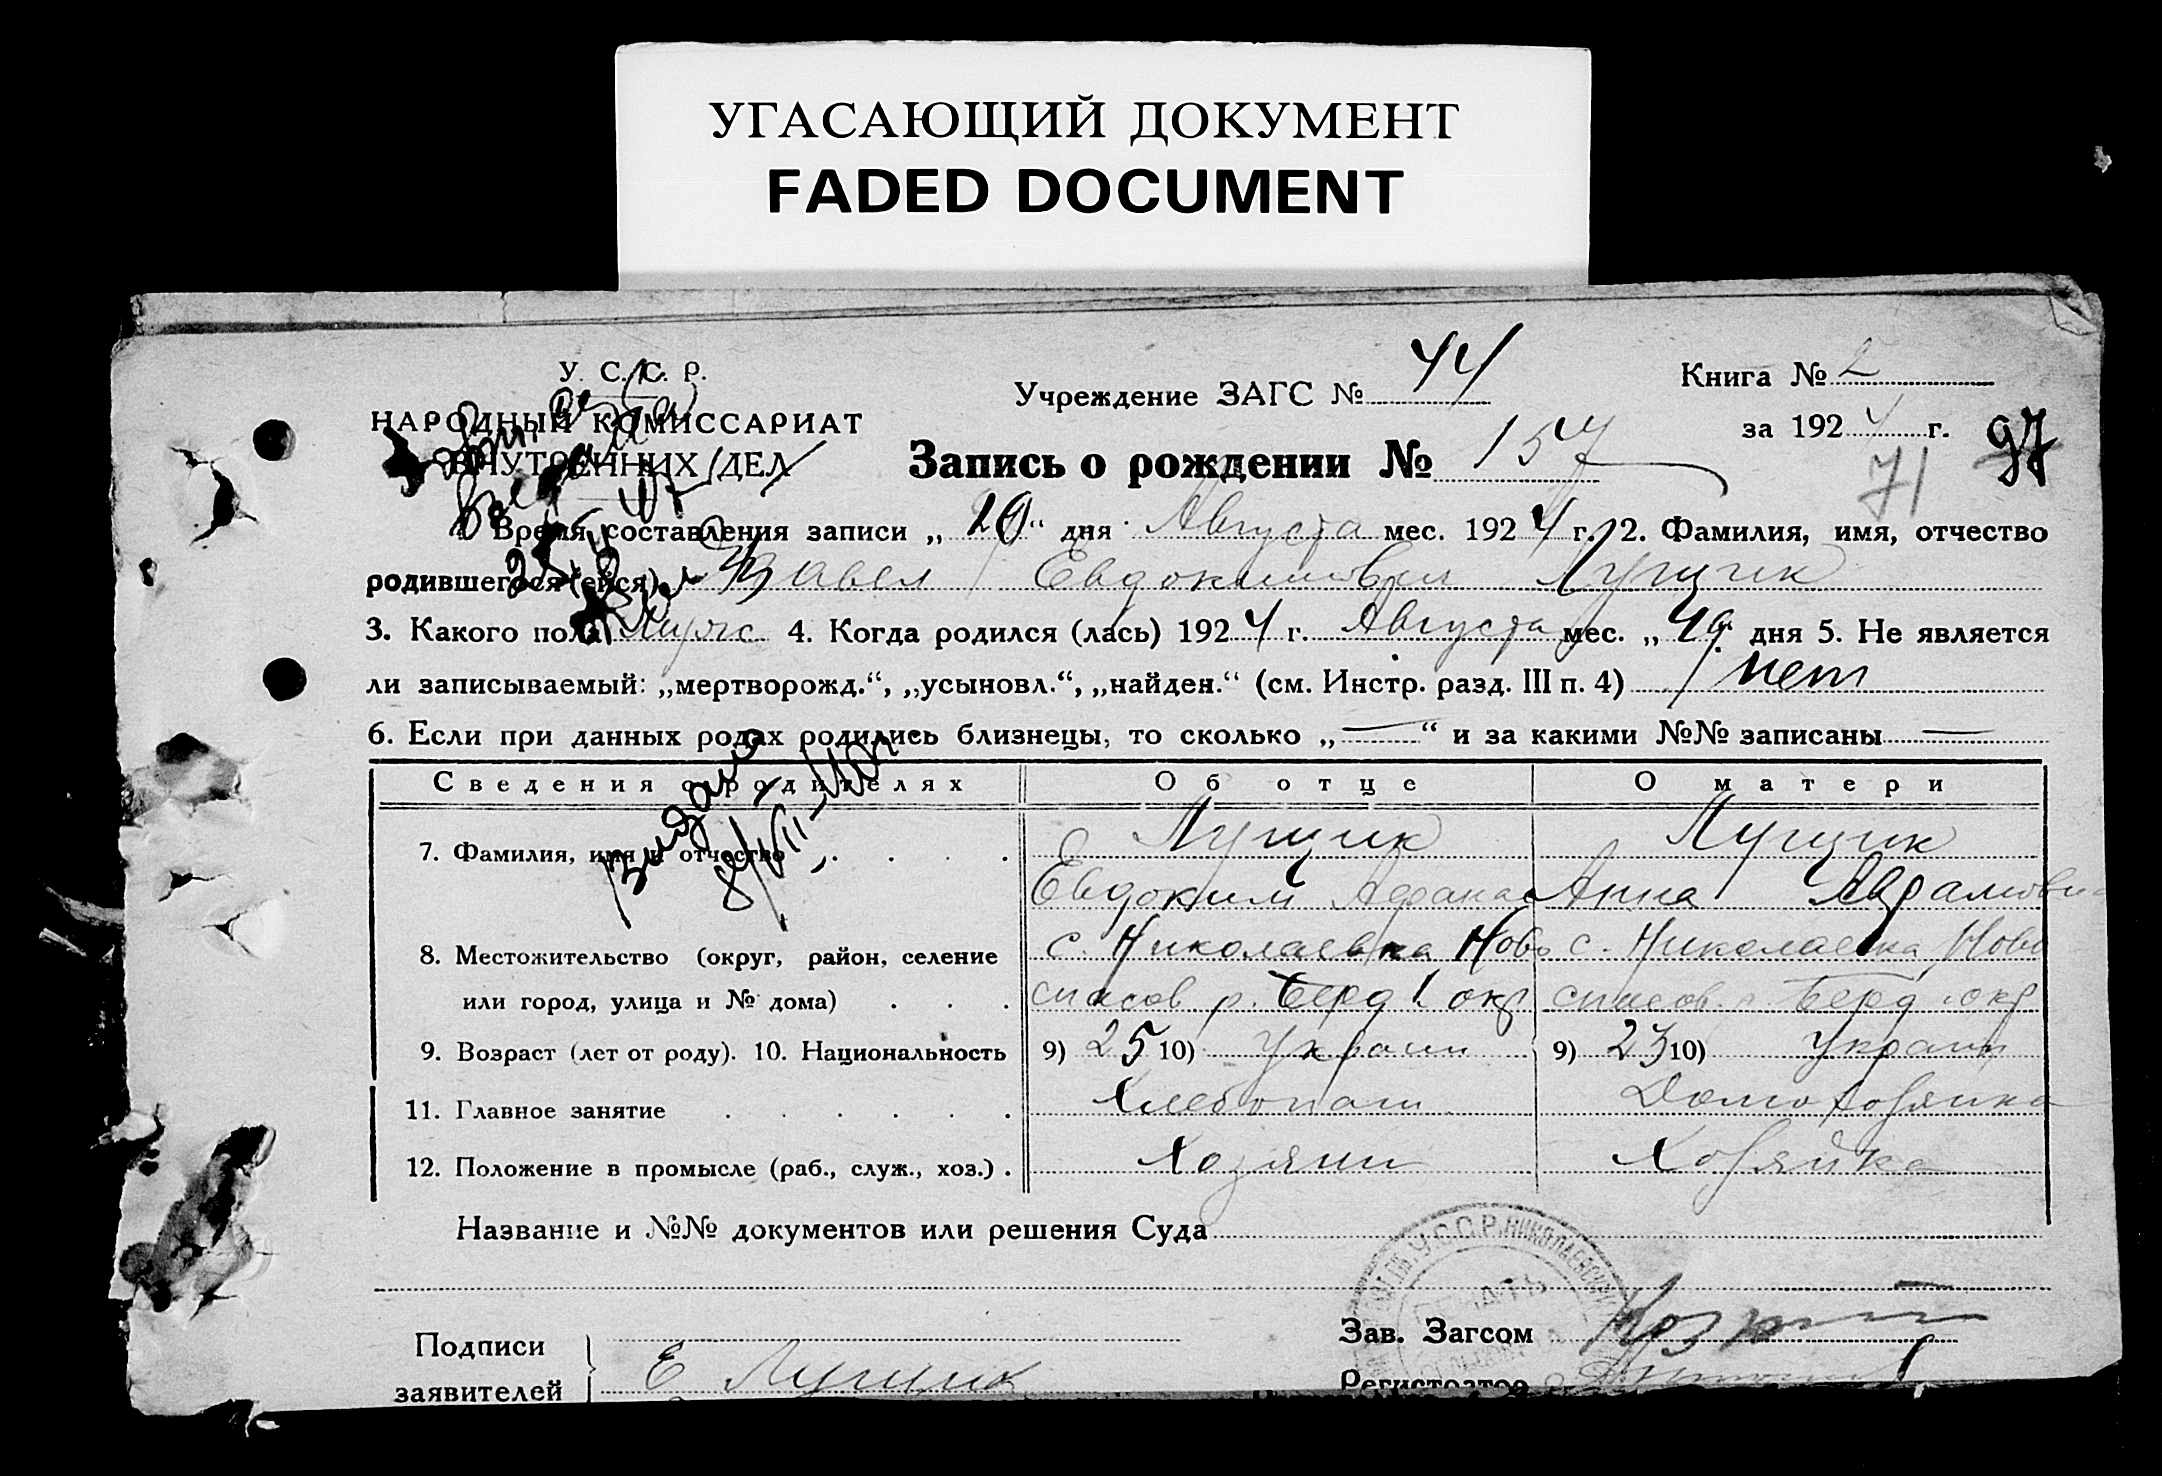 УГАСАЮЩИЙ ДОКУМЕНТ
FADED DOCUMENT
У. С. С. Р.
НАРОДНЫЙ КОМИССАРИАТ
ВНУТРЕННИХ ДЕЛ
Учреждение ЗАГС № 44
Книга № 2
за 1924 г.
97
71
Запись о рождении № 157
1. Время составления записи „20“ дня Августа мес. 1924 г. 2. Фамилия, имя, отчество
родившегося (ейся) Павел Евдокимович Лущик
3. Какого пола Мужс 4. Когда родился (лась) 1924 г. Августа мес. „19“ дня 5. Не является
ли записываемый: „мертворожд.“, „усыновл.“, „найден.“ (см. Инстр. разд. III п. 4) нет
6. Если при данных родах родились близнецы, то сколько „—“ и за какими №№ записаны —
Видано
8/VII-40г.
Сведения о родителях Об отце О матери
7. Фамилия, имя и отчество Лущик Лущик
Евдоким Афанас Анна Аврамовн
8. Местожительство (округ, район, селение с. Николаевка Ново с. Николаевка Ново
или город, улица и № дома) спасов р. Берд. окр спасов. р. Берд. окр
9. Возраст (лет от роду). 10. Национальность 9) 25 10) Украин 9) 23 10) Украин
11. Главное занятие Хлебопаш Домохозяйка
12. Положение в промысле (раб., служ., хоз.) . Хозяин Хозяйка
Название и №№ документов или решения Суда
Подписи
заявителей Е Лущик
Зав. Загсом
Регистратор